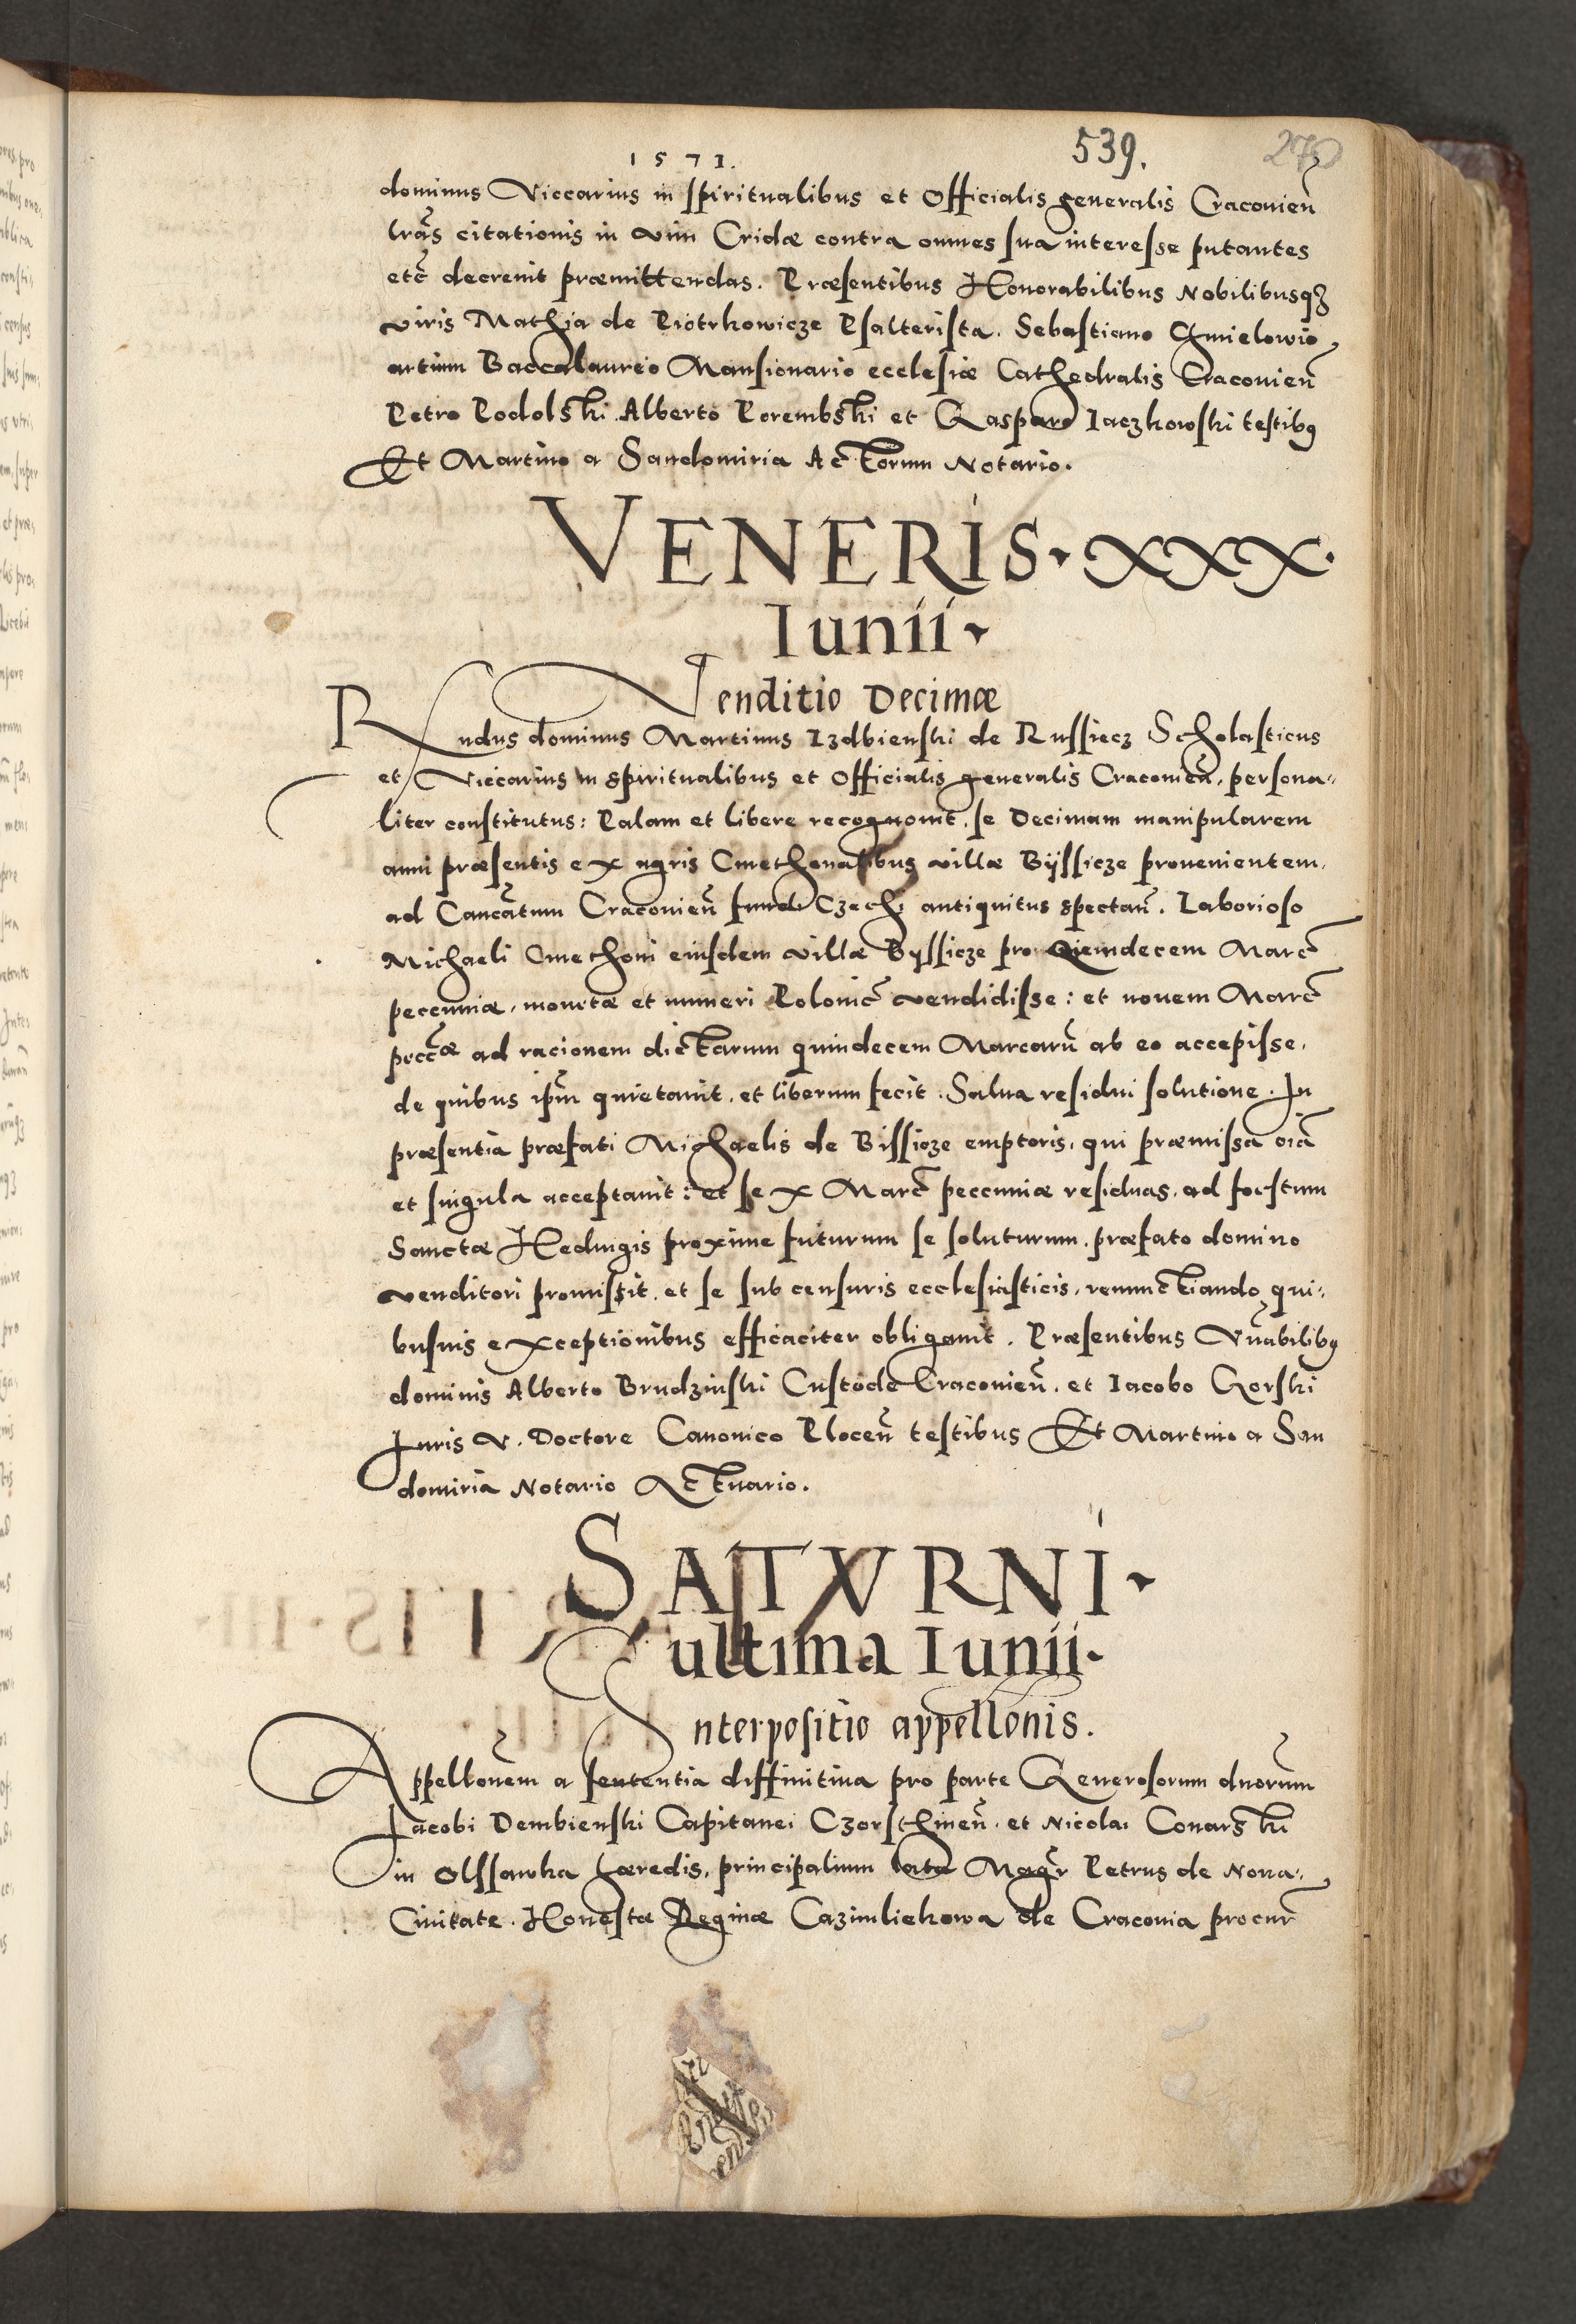 1571.
539.
270
dominus Viccarius in spiritualibus et Officialis generalis Craconieñ
lrãs citationis in vim Cridæ contra omnes sua interesse putantes
etc̃ decreuit præmittendas. Præsentibus Honorabilibus Nobilibusqꝫ
viris Mathia de Piotrkowicze Psalterista. Sebastiano Chmielowio
artium Baccalaureo Mansionario ecclesiæ Cathedralis Cracouieñ
Petro Podolski Alberto Porembski et Gasparo Iaczkowski testibꝰ
Et Martino a Sandomiria Actorum Notario.
VENERIS · XXX ·
Iunii ·
Venditio Decimæ
Rndus dominus Martinus Izdbienski de Russiecz Scholasticus
et Viccarius in spiritualibus et Officialis generalis Cracouieñ, persona-
liter constitutus: Palam et libere recognouit, se Decimam manipularem
anni præsentis ex agris Cmethonalibus villæ Byssicze prouenientem,
ad Cancãtum Cracouieñ fundi Czechi antiquitus spectañ. Laborioso
Michaeli Cmethoni eiusdem villæ Byssicze pro Qiendecem Marc̃
peccuniæ, monetæ et numeri Polonic̃ vendidisse: et nouem Marc̃
pecc̃æ ad racionem dictarum quindecem Marcarũ ab eo accepisse,
de quibus ipm̃ quietauit, et liberum fecit. Salua residui solutione. In
præsentia præfati Michaelis de Bissicze emptoris, qui præmissa oiã
et singula acceptauit: et se x Marc̃ peccuniæ residuas, ad foestum
Sanctæ Heduigis proxime futurum se soluturum, præfato domino
venditori promissit, et se sub censuris ecclesiasticis, renunctiando qui-
busuis exceptionibus efficaciter obligauit. Præsentibus Vñabilibꝰ
dominis Alberto Brudzinski Custode Cracouieñ, et Iacobo Gorski
Iuris V. Doctore Canonico Ploceñ testibus Et Martino a San
domiria Notario Actuario.
SATVRNI ·
ultima Iunii ·
Interpositio appellonis.
Appellonẽm a sententia diffinitiua pro parte Generosorum dnorum
Iacobi Dembienski Capitanei Czorsthineñ, et Nicolai Conarski
in Olssawka hæredis, principalium lata Magr̃ Petrus de Noua-
Ciuitate. Honestæ Reginæ Cazimliekowa de Cracouia procur̃